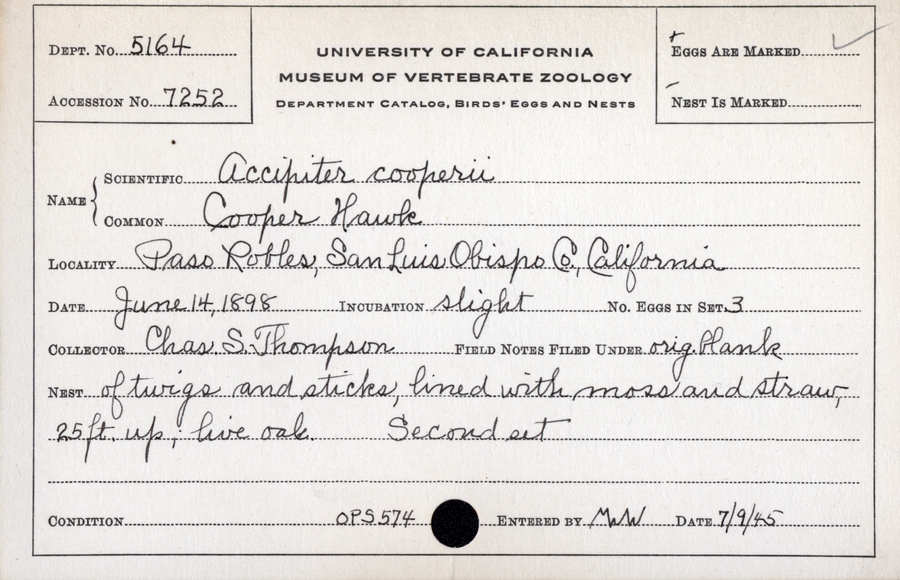 DEPT. No. 5164
ACCESSION No. 7252
UNIVERSITY OF CALIFORNIA
MUSEUM OF VERTEBRATE ZOOLOGY
DEPARTMENT CATALOG, BIRDS' EGGS AND NESTS
+
EGGS ARE MARKED ✓
-
NEST IS MARKED
NAME { SCIENTIFIC Accipiter cooperii
COMMON Cooper Hawk
LOCALITY Paso Robles, San Luis Obispo Co., California
DATE June 14, 1898 INCUBATION slight NO. EGGS IN SET 3
COLLECTOR Chas. S. Thompson FIELD NOTES FILED UNDER orig. blank
NEST of twigs and sticks, lined with moss and straw,
25 ft. up, live oak. Second set
CONDITION OPS 574 ENTERED BY MWW DATE 7/9/45